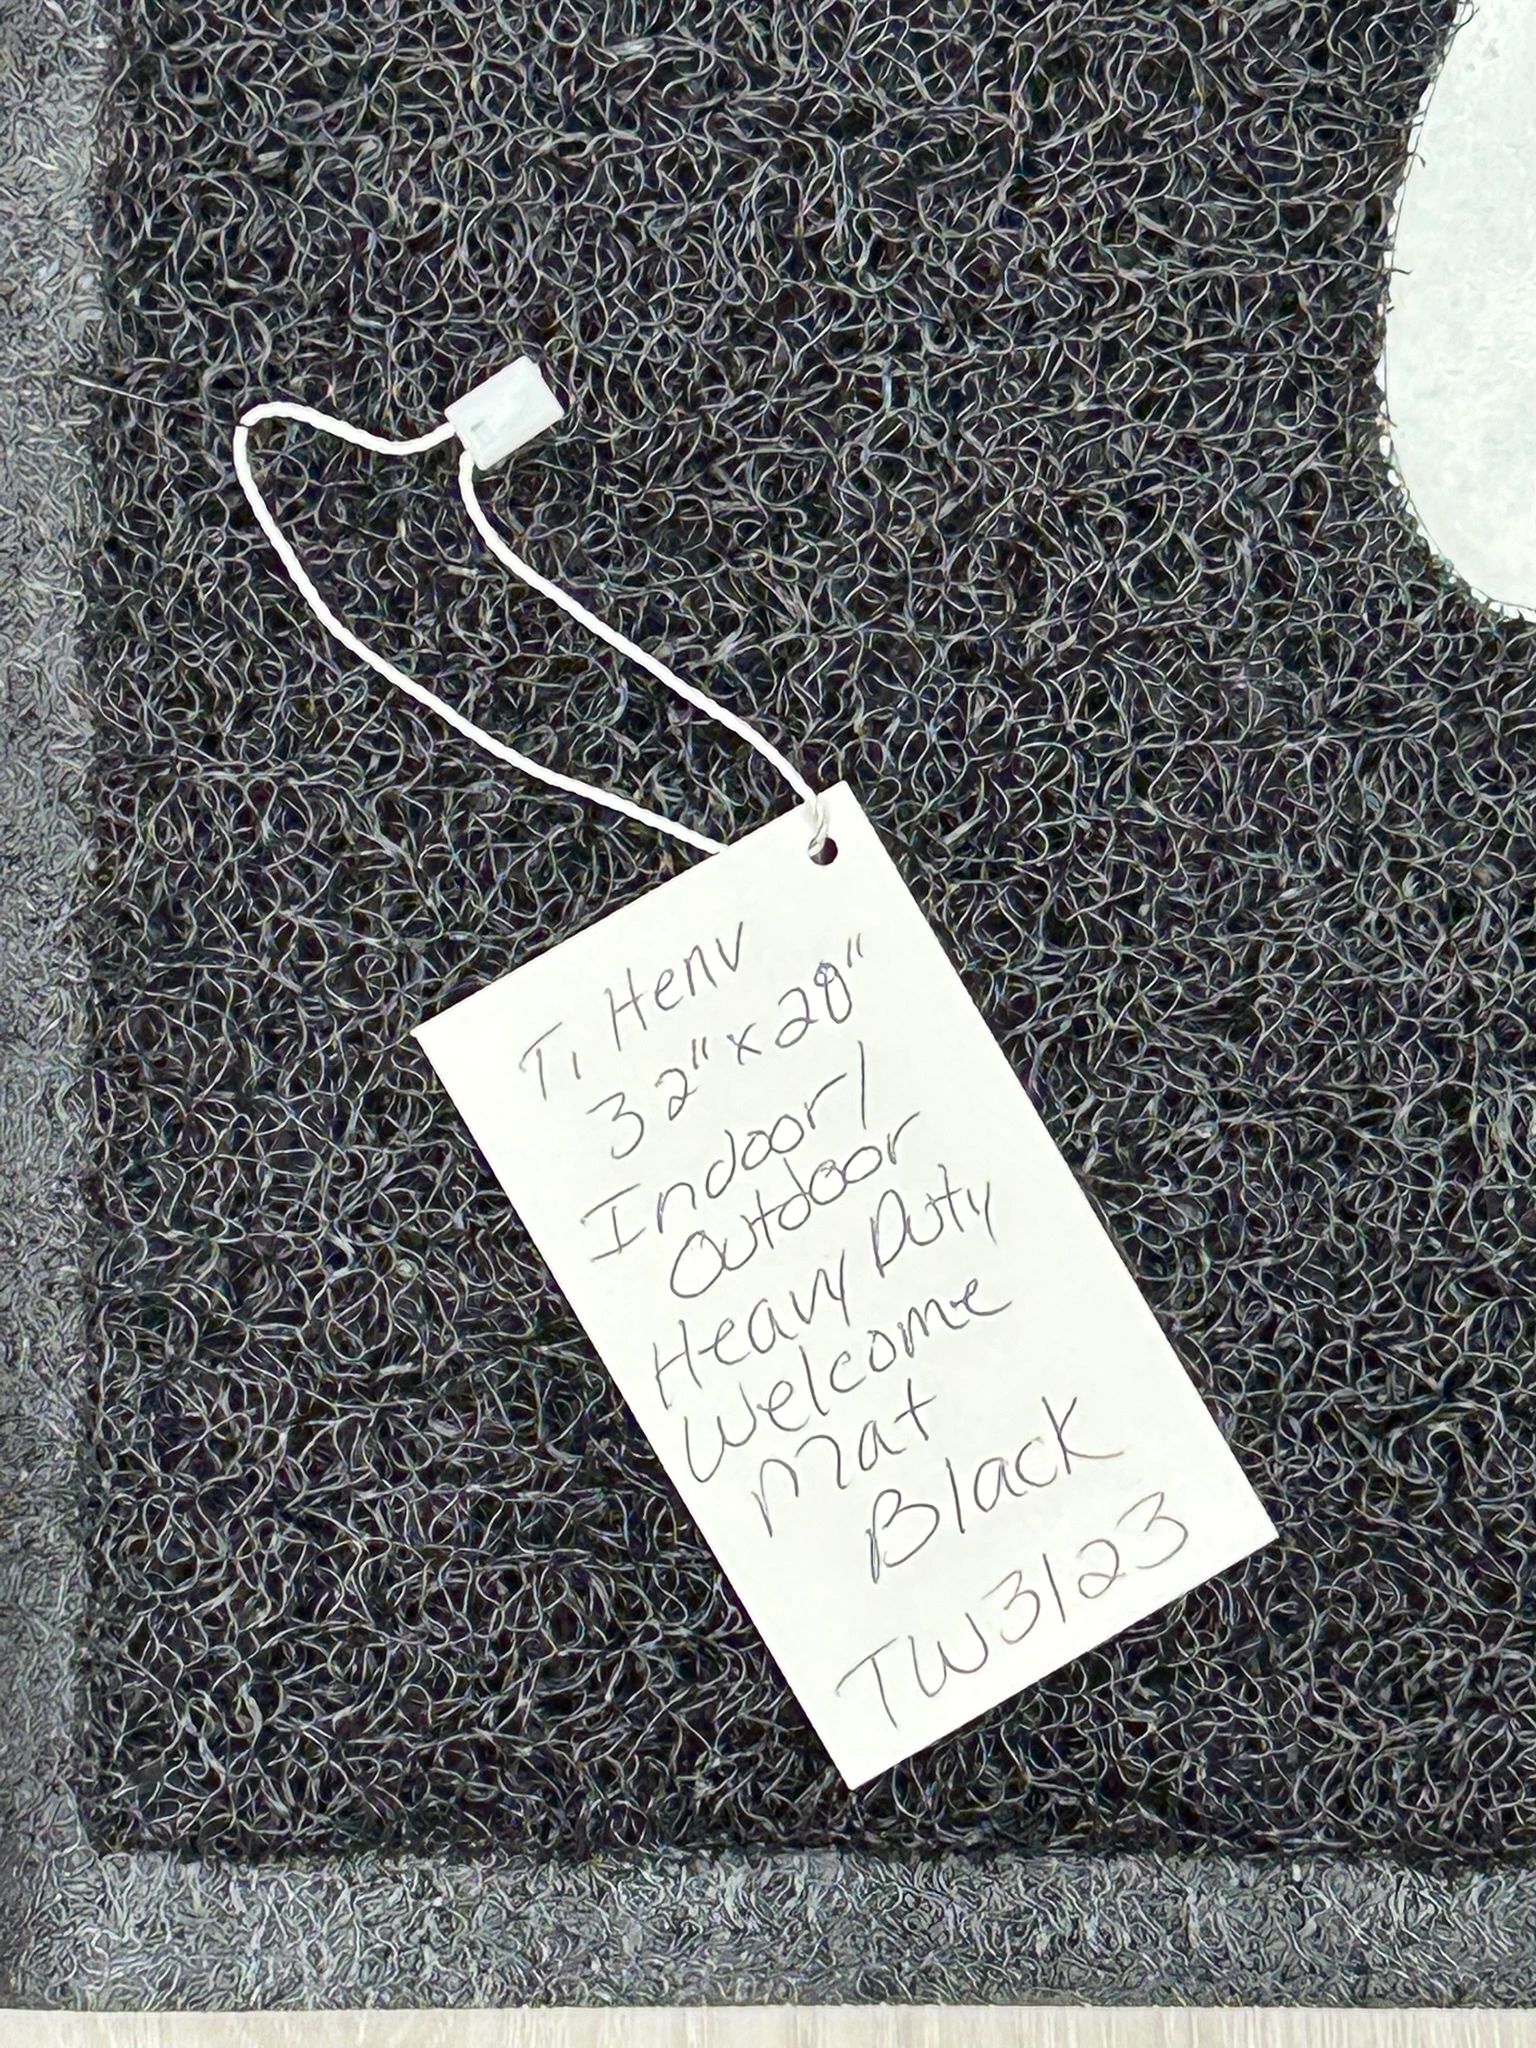 T. Henv
32" x 20"
Indoor/
Outdoor
Heavy Duty
Welcome
Mat
Black
TW3123